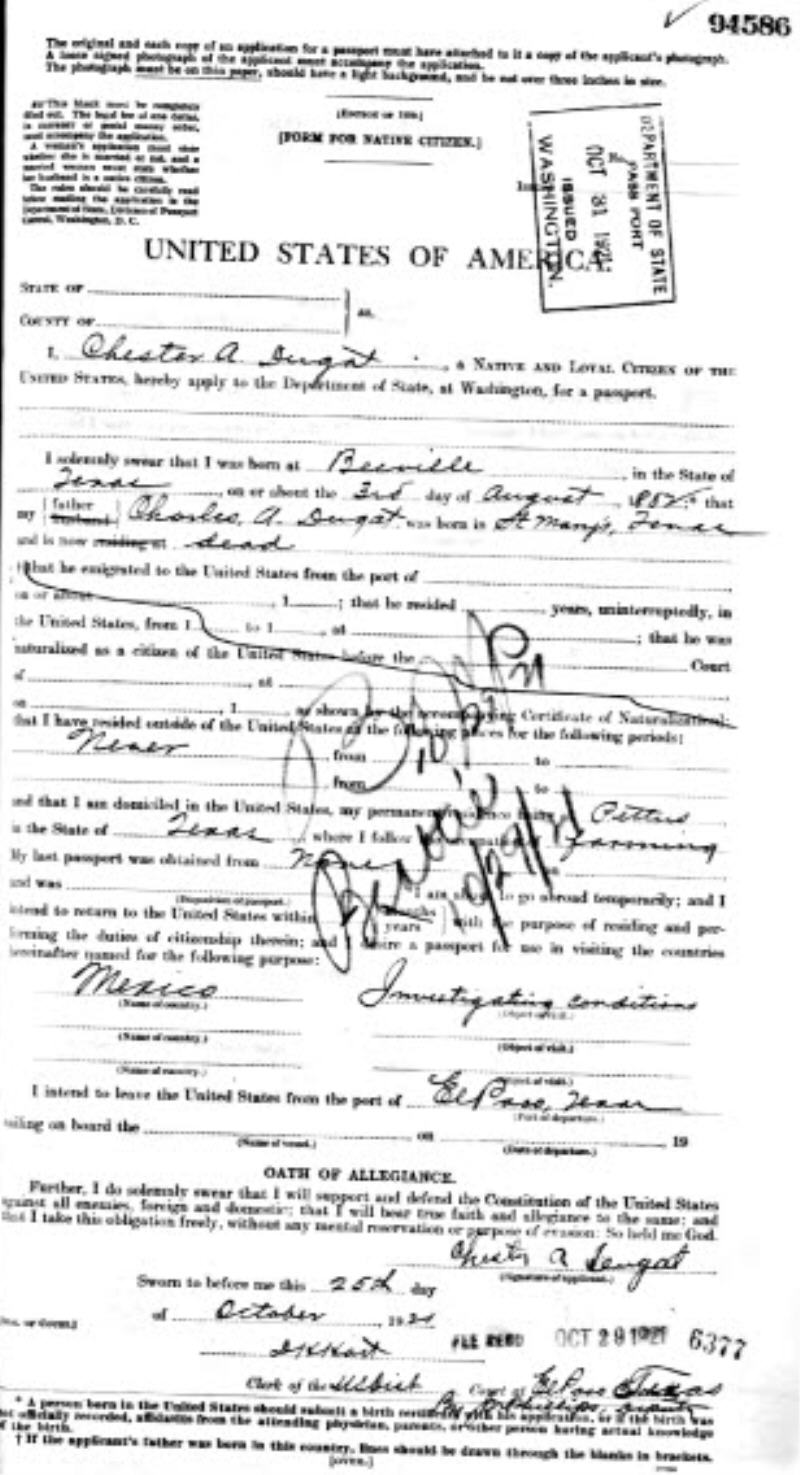 94586
The original and each copy of an application for a passport must have attached to it a copy of the applicant's photograph.
A loose signed photograph of the applicant must accompany the application.
The photograph must be on thin paper, should have a light background, and be not over three inches in size.
[FORM FOR NATIVE CITIZEN.]
DEPARTMENT OF STATE
PASSPORT
OCT 31 1921
ISSUED
WASHINGTON.
UNITED STATES OF AMERICA,
STATE OF
COUNTY OF
ss.
I, Chester A. Dugat, a NATIVE AND LOYAL CITIZEN OF THE
UNITED STATES, hereby apply to the Department of State, at Washington, for a passport.
I solemnly swear that I was born at Beeville, in the State of
Texas, on or about the 3rd day of August, that
my father husband Charles. A. Dugat was born in St Mary's, Texas
and is now residing at dead
that he emigrated to the United States from the port of
on or about , 1 ; that he resided years, uninterruptedly, in
the United States, from 1 to 1 , at ; that he was
naturalized as a citizen of the United States before the Court
of , at
on , 1 , as shown by the accompanying Certificate of Naturalization];
that I have resided outside of the United States at the following places for the following periods:
Never from to
from to
and that I am domiciled in the United States, my permanent residence being Pettus
in the State of Texas, where I follow farming
My last passport was obtained from None
and was I am to go abroad temporarily; and I
(Disposition of passport.)
intend to return to the United States within months years with the purpose of residing and per-
forming the duties of citizenship therein; and desire a passport for use in visiting the countries
hereinafter named for the following purpose:
10/29/21
Mexico Investigating conditions
(Name of country.) (Object of visit.)
(Name of country.) (Object of visit.)
(Name of country.) (Object of visit.)
I intend to leave the United States from the port of El Paso, Texas
(Port of departure.)
sailing on board the on 19
(Name of vessel.) (Date of departure.)
OATH OF ALLEGIANCE.
Further, I do solemnly swear that I will support and defend the Constitution of the United States
against all enemies, foreign and domestic; that I will bear true faith and allegiance to the same; and
that I take this obligation freely, without any mental reservation or purpose of evasion: So held me God.
Chester A Dugat
(Signature of applicant.)
Sworn to before me this 25th day
of October, 1921
FEE RECD OCT 29 1921 6377
Clerk of the Court at El Paso Texas
* A person born in the United States should submit a birth certificate with his application, or if the birth was
not officially recorded, affidavits from the attending physician, parents, or other person having actual knowledge
of the birth.
† If the applicant's father was born in this country, lines should be drawn through the blanks in brackets.
[OVER.]